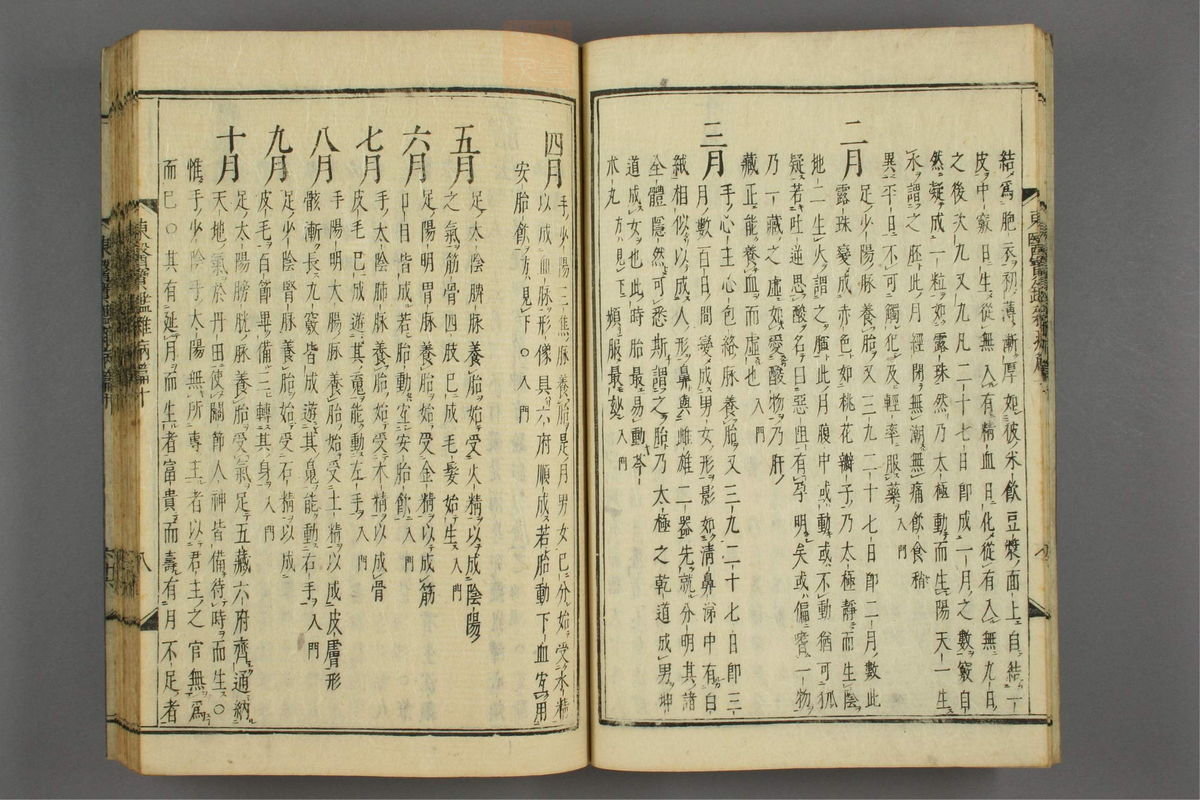 結爲胞衣初薄漸厚如彼米飮豆漿面上自結一
皮中竅日生從無入有精血日化從有入無九日
之後次九又九凡二十七日卽成一月之數竅自
然凝成一粒如露珠然乃太極動而生陽天一生
水謂之胚此月經閉無潮無痛飮食稍
異平日不可觸犯及輕率服藥入門
二月
足少陽脉養胎又三九二十七日卽二月數此
露珠變成赤色如桃花瓣子乃太極靜而生陰
地二生火謂之腪此月腹中或動或不動猶可狐
疑若吐逆思酸名曰惡阻有孕明矣或偏嗜一物
乃一藏之虛如愛酸物乃肝
藏正能養血而虛也入門
三月
手心主心包絡脉養胎又三九二十七日卽三
月數百日間變成男女形影如淸鼻涕中有白
絨相似以成人形鼻與雌雄二器先就分明其諸
全體隱然可悉斯謂之胎乃太極之乾道成男坤
道成女也此時胎最易動芩
朮丸方見下頻服最妙入門
四月
手少陽三焦脉養胎是月男女已分始受水精
以成血脉形像具六府順成若胎動下血宜用
安胎飮方見下○入門
五月
足太陰脾脉養胎始受火精以成陰陽
之氣筋骨四肢已成毛髮始生入門
六月
足陽明胃脉養胎始受金精以成筋
口目皆成若胎動宜安胎飮入門
七月
手太陰肺脉養胎始受木精以成骨
皮毛已成遊其魂能動左手入門
八月
手陽明大腸脉養胎始受土精以成皮膚形
骸漸長九竅皆成遊其魄能動右手入門
九月
足少陰腎脉養胎始受石精以成
皮毛百節畢備三轉其身入門
十月
足太陽膀胱脉養胎受氣足五藏六府齊通納
天地氣於丹田使關節人神皆備待時而生○
惟手少陰手太陽無所專主者以君主之官無爲
而已○其有延月而生者富貴而壽有月不足者
東醫寶鑑雜病篇十
八